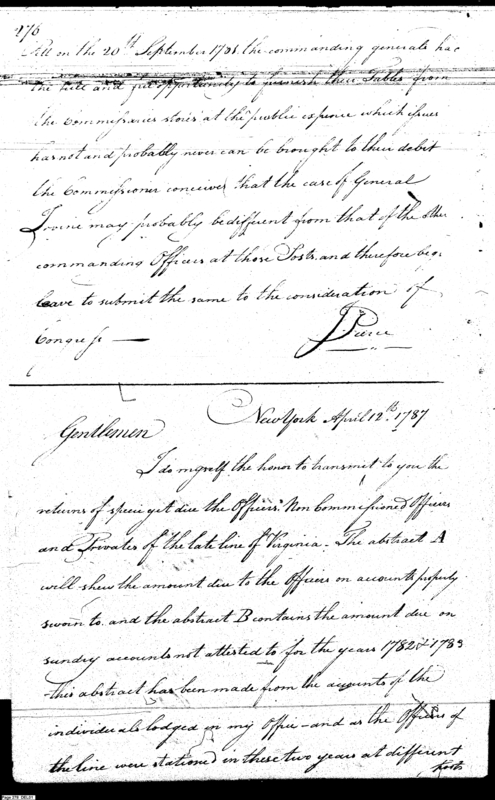 276
Till on the 20th September 1781 the commanding generals had
the full and yet opportunity to furnish their Tables from
the Commissaries stores at the public expence which issues
has not and probably never can be brought to their debit
the Commissioner conceives that the case of General
Irvine may probably be different from that of the other
commanding Officers at those Posts and therefore begs
leave to submit the same to the consideration of
Congress —
J Pierce
New York April 12th. 1787
Gentlemen
I do myself the honor to transmit to you the
returns of specie yet due the Officers Non Commissioned Officers
and Privates of the late line of Virginia. The abstract A
will shew the amount due to the Officers on accounts properly
sworn to. and the abstract B contains the amount due on
sundry accounts not attested to for the years 1782 & 1783
this abstract has been made from the accounts of the
individuals lodged in my Office - and as the Officers of
the line were stationed in these two years at different